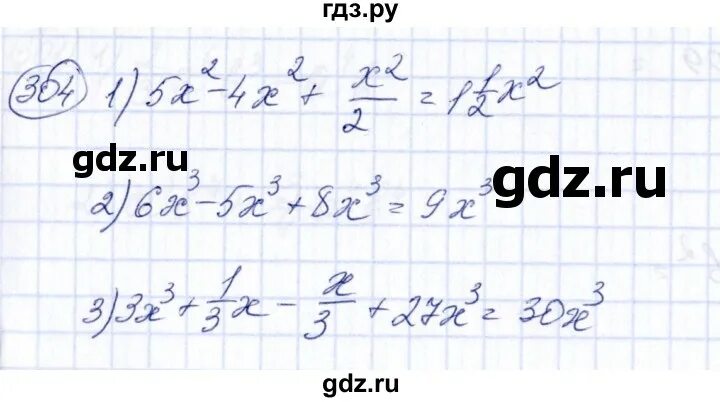 гдз.ру
304 1) 5x² - 4x² + x²/2 = 1 1/2 x²
gdz.ru
gdz.ru
2) 6x³ - 5x³ + 8x³ = 9x³
3) 3x³ + 1/3 x - x/3 + 27x³ = 30x³
gdz.ru